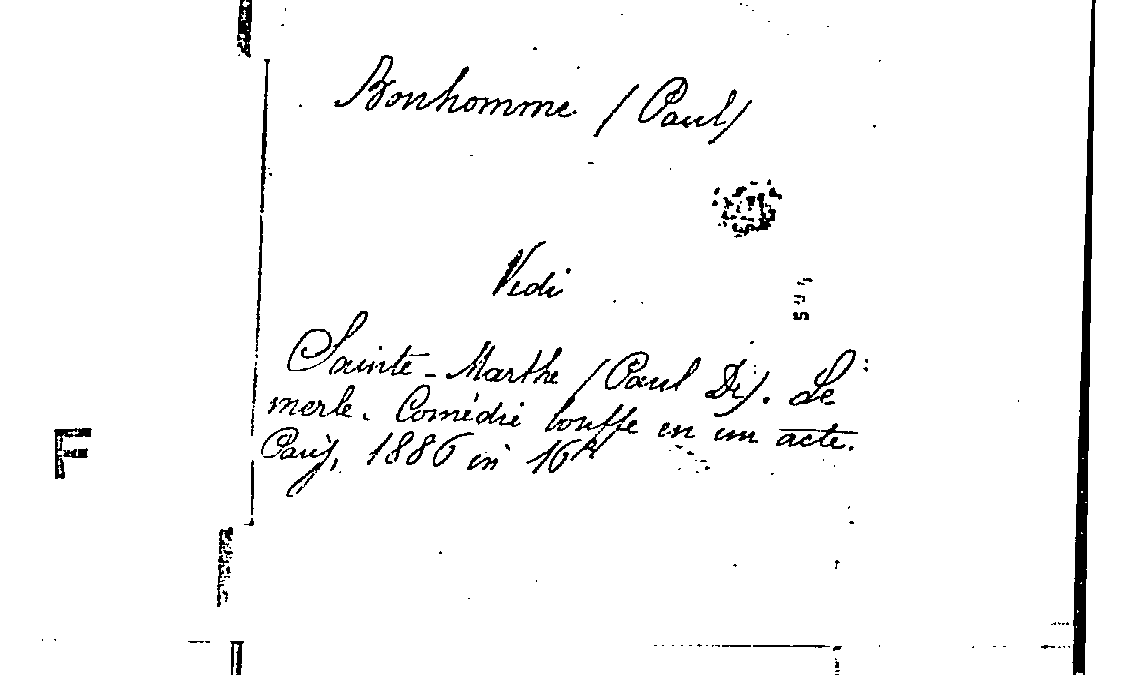 Bonhomme (Paul)
Vedi
Sainte-Marthe (Paul De). Le
merle. Comédie bouffe en un acte.
Paris, 1886 in 16º
F